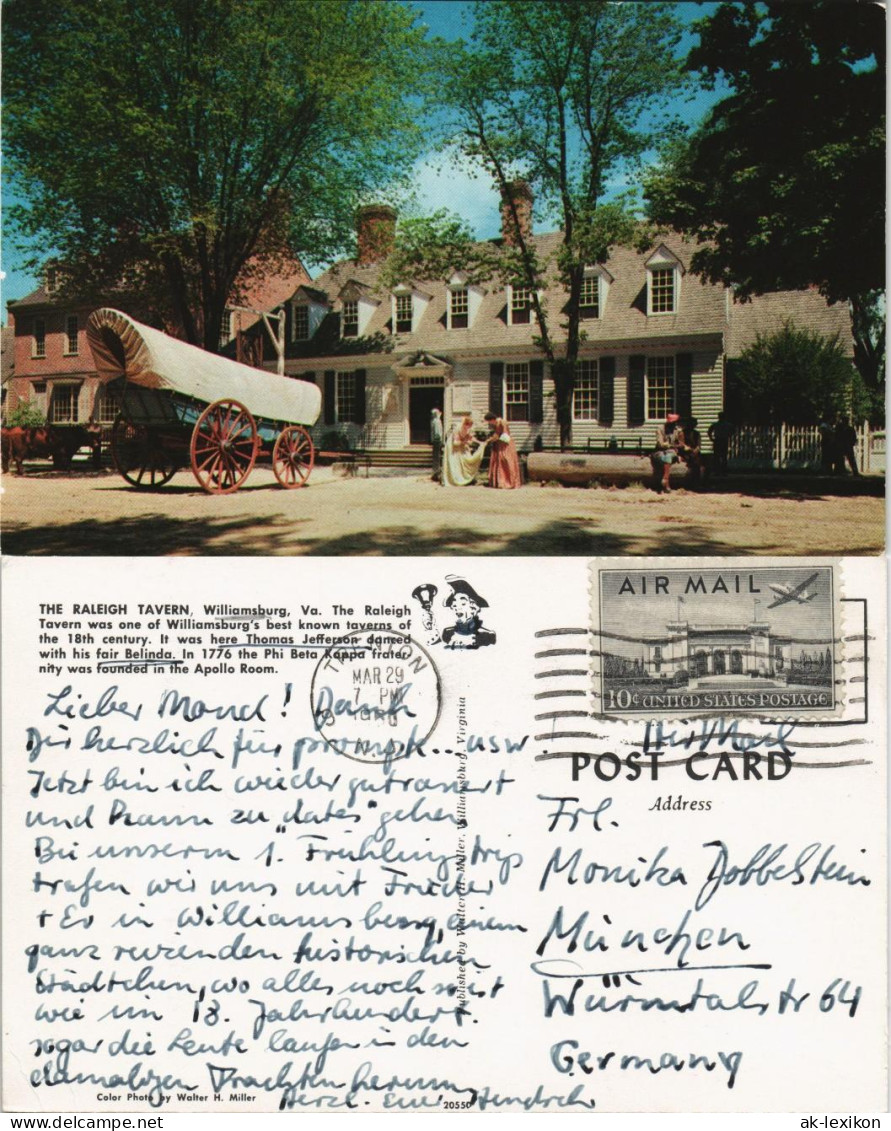 THE RALEIGH TAVERN, Williamsburg, Va. The Raleigh
Tavern was one of Williamsburg's best known taverns of
the 18th century. It was here Thomas Jefferson danced
with his fair Belinda. In 1776 the Phi Beta Kappa frater-
nity was founded in the Apollo Room.
Lieber Mond! Dank
Dir herzlich für prompt... usw.
Jetzt bin ich wieder
und kann zu "dates" gehen
Bei unserm 1. Frühlingstrip
trafen wir uns mit Frieder
+ Ev in Williamsburg, einem
ganz reizenden historischen
Städtchen, wo alles noch so ist
wie im 18. Jahrhundert.
sogar die Leute laufen in den
damaligen Trachten herum
Herzl. Euer Hendrik
Color Photo by Walter H. Miller
20550
Published by Walter H. Miller, Williamsburg, Virginia
TRENTON
MAR 29
7 PM
N.J.
AIR MAIL
10¢ UNITED STATES POSTAGE
Air Mail
POST CARD
Address
Frl.
Monika Dobbelstein
München
Würmtalstr 64
Germany
ak-lexikon